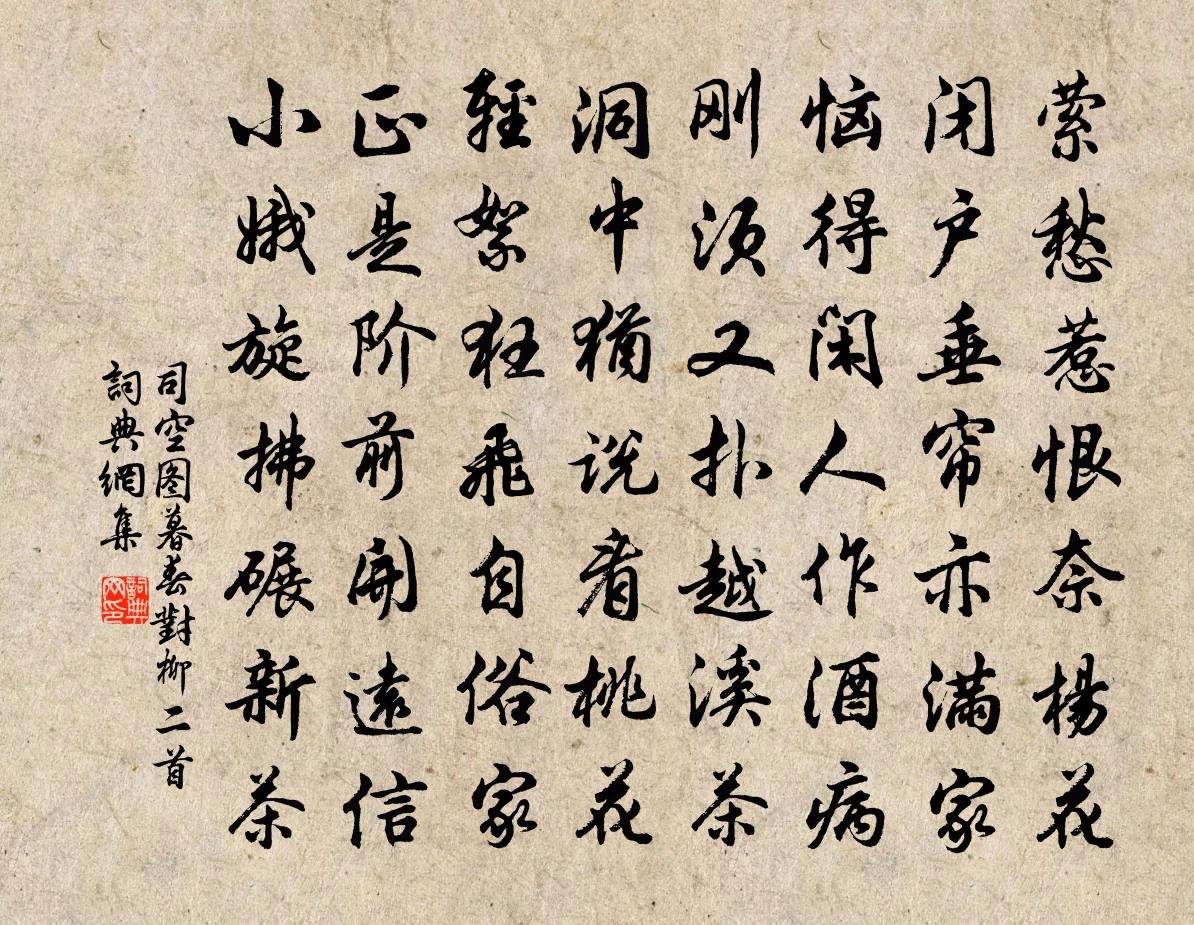 萦愁惹恨奈杨花
闭户垂帘亦满家
恼得闲人作酒病
刚须又扑越溪茶
洞中犹说看桃花
轻絮狂飞自俗家
正是阶前开远信
小娥旋拂碾新茶
司空图暮春對柳二首
詞典網集
詞典网印